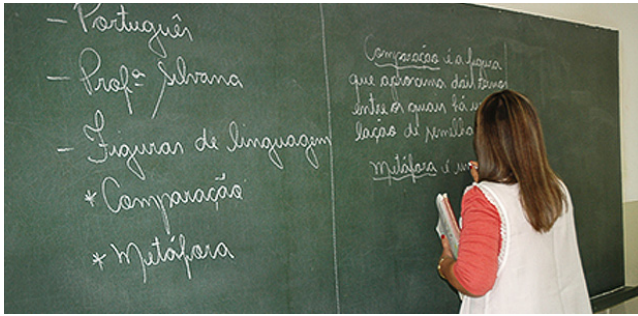 - Português
- Profª Silvana
- Figuras de linguagem
* Comparação
* Metáfora
Comparação é a figura
que aproxima dois termos
entre os quais há
lação de
Metáfora é